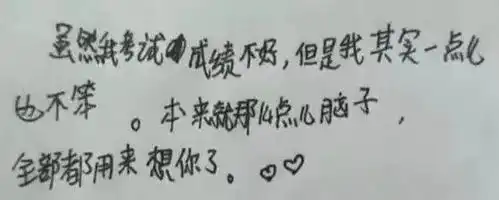 虽然我考试成绩不好，但是我其实一点儿
也不笨。本来就那么点儿脑子，
全部都用来想你了。♡♡